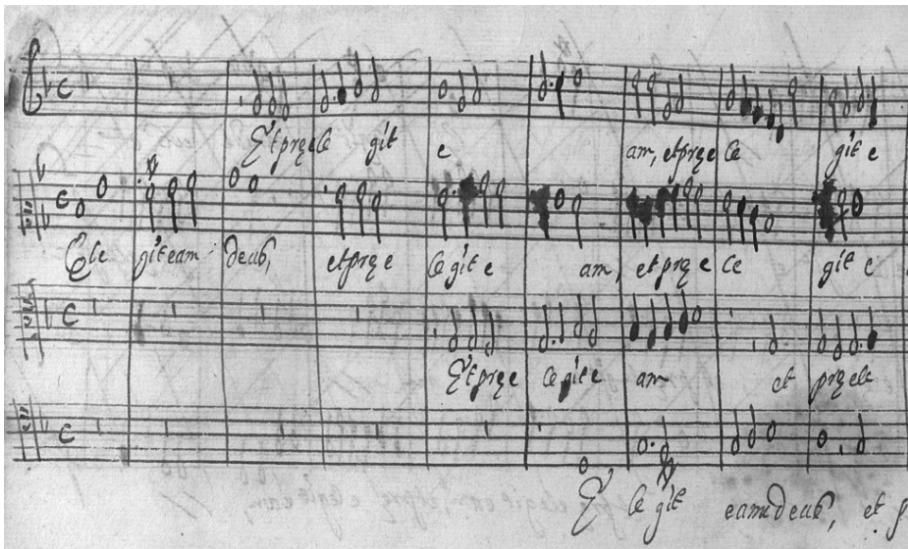 Et præele git e am, et præele gite
Ele git eam deus, et præe legit e am, et præe le git e
Et præe legit e am et præele
E legit eam deus, et p